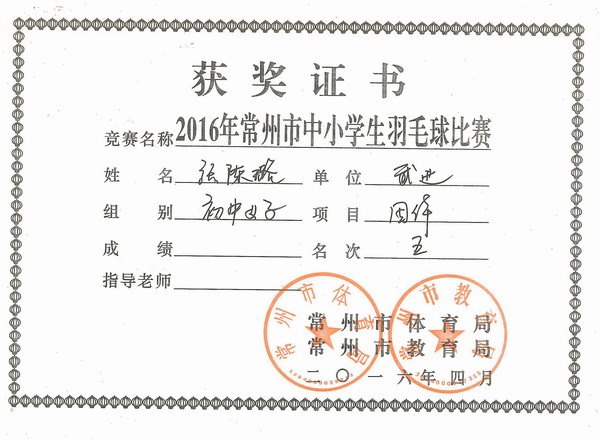 获奖证书
竞赛名称 2016年常州市中小学生羽毛球比赛
姓名 张陈璐 单位 武进
组别 初中女子 项目 团体
成绩 名次 五
指导老师
常州市体育局
常州市教育局
二〇一六年四月
常州市体育局
常州市教育局